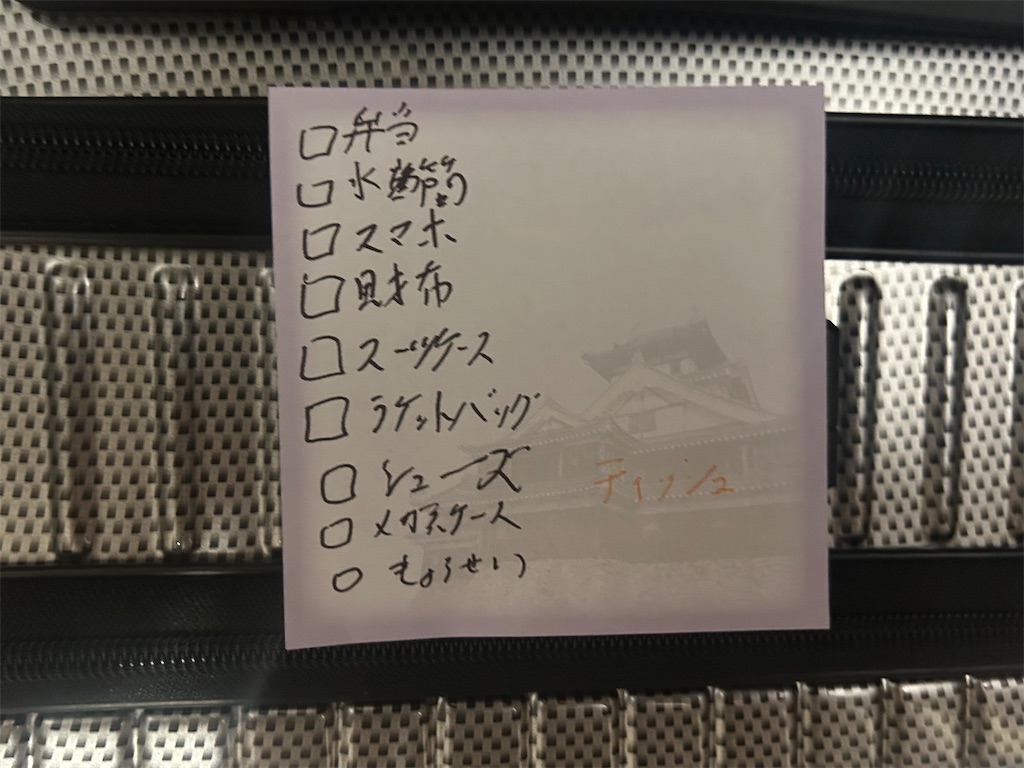 □弁当
□水筒
□スマホ
□財布
□スーツケース
□ラケットバッグ
□シューズ
ティッシュ
□メガネケース
○きょうせい